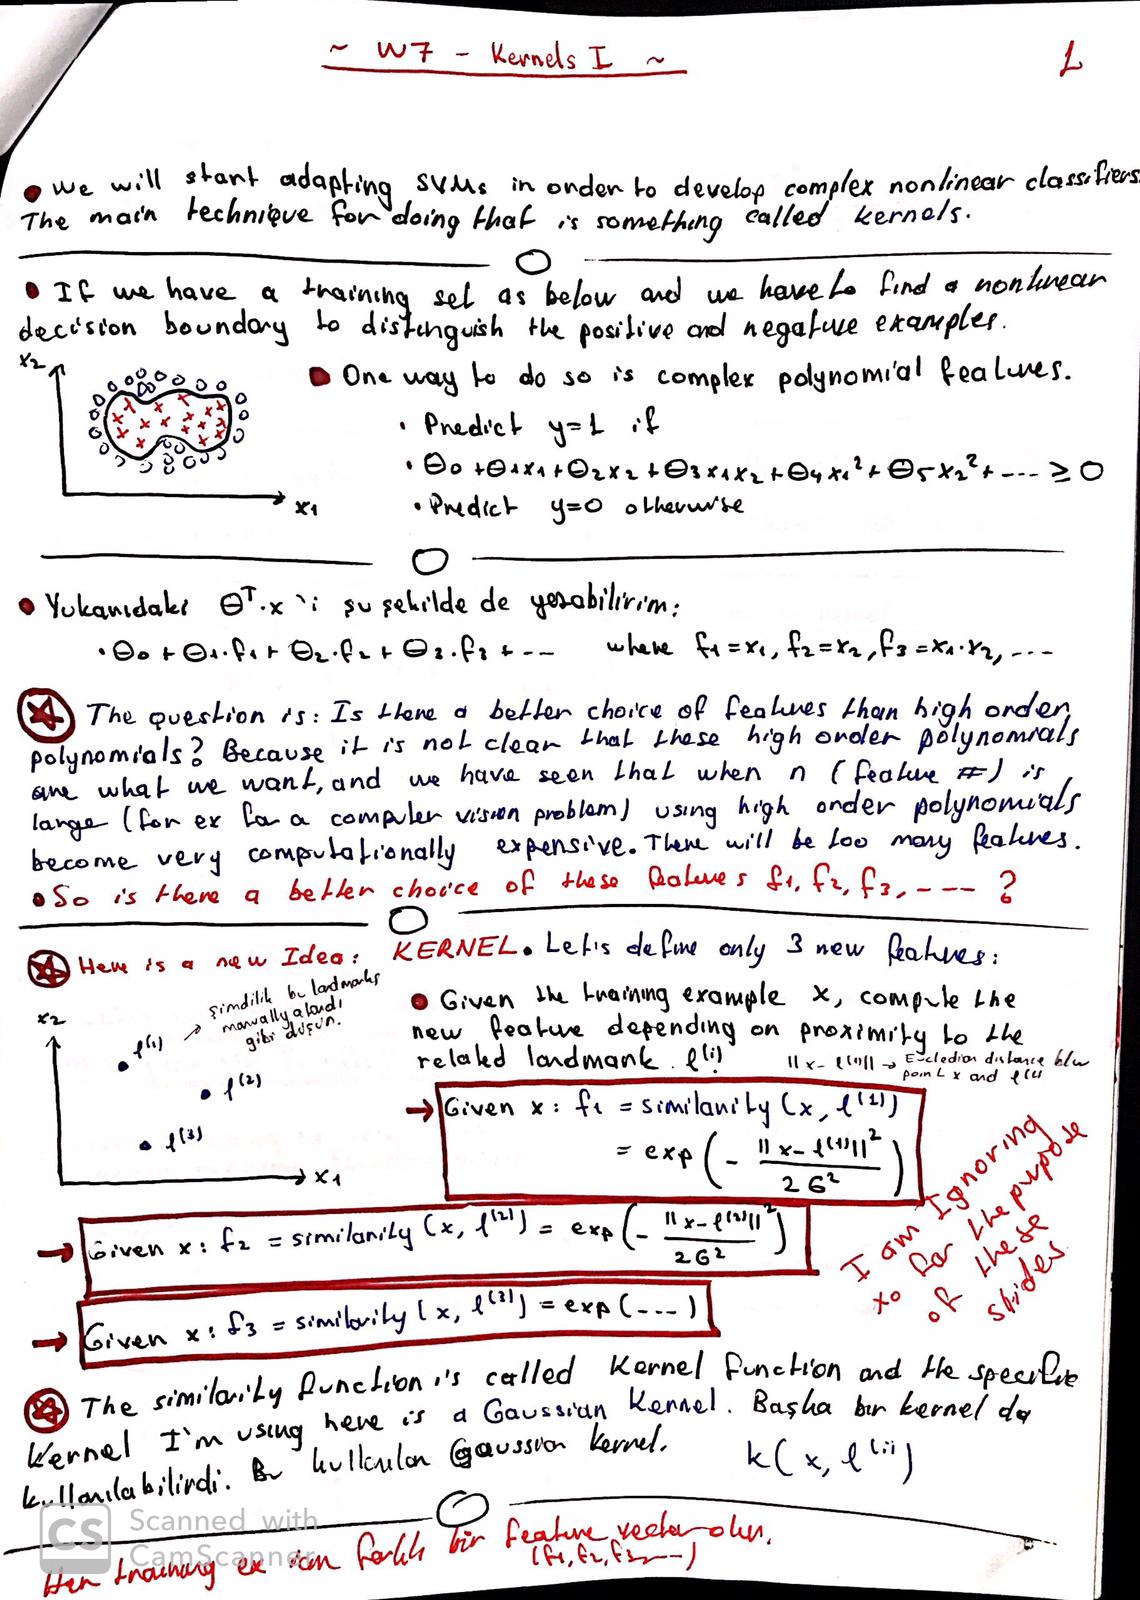 ~ W7 - Kernels I ~
1
• We will start adapting SVMs in order to develop complex nonlinear classifiers.
The main technique for doing that is something called kernels.
• If we have a training set as below and we have to find a nonlinear
decision boundary to distinguish the positive and negative examples.
x2
x1
• One way to do so is complex polynomial features.
• Predict y=1 if
• θ0 + θ1x1 + θ2x2 + θ3x1x2 + θ4x1² + θ5x2² + ---- ≥ 0
• Predict y=0 otherwise
• Yukarıdaki θᵀ.x 'i şu şekilde de yazabilirim:
• θ0 + θ1.f1 + θ2.f2 + θ3.f3 + --- where f1=x1, f2=x2, f3=x1.x2, ---
The question is: Is there a better choice of features than high order
polynomials? Because it is not clear that these high order polynomials
are what we want, and we have seen that when n (feature #) is
large (for ex for a computer vision problem) using high order polynomials
become very computationally expensive. There will be too many features.
• So is there a better choice of these features f1, f2, f3, ---- ?
Here is a new Idea: KERNEL. Let's define only 3 new features:
şimdilik bu landmarks
manually alındı
gibi düşün.
x2
l(1)
l(2)
l(3)
x1
• Given the training example x, compute the
new feature depending on proximity to the
related landmark l(i)
||x - l(1)|| → Eucledian distance btw
point x and l(1)
→ Given x: f1 = similarity (x, l(1))
= exp(- ||x - l(1)||² / 2σ²)
→ Given x: f2 = similarity (x, l(2)) = exp(- ||x - l(2)||² / 2σ²)
→ Given x: f3 = similarity (x, l(3)) = exp(---)
I am Ignoring
x0 for the purpose
of these
slides
The similarity function is called Kernel Function and the specific
kernel I'm using here is a Gaussian Kernel. Başka bir kernel da
kullanılabilirdi. Bu kullanılan gaussian kernel.
k(x, l(i))
Her training ex için farklı bir feature vector olur.
(f1, f2, f3, ---)
CS Scanned with
CamScanner